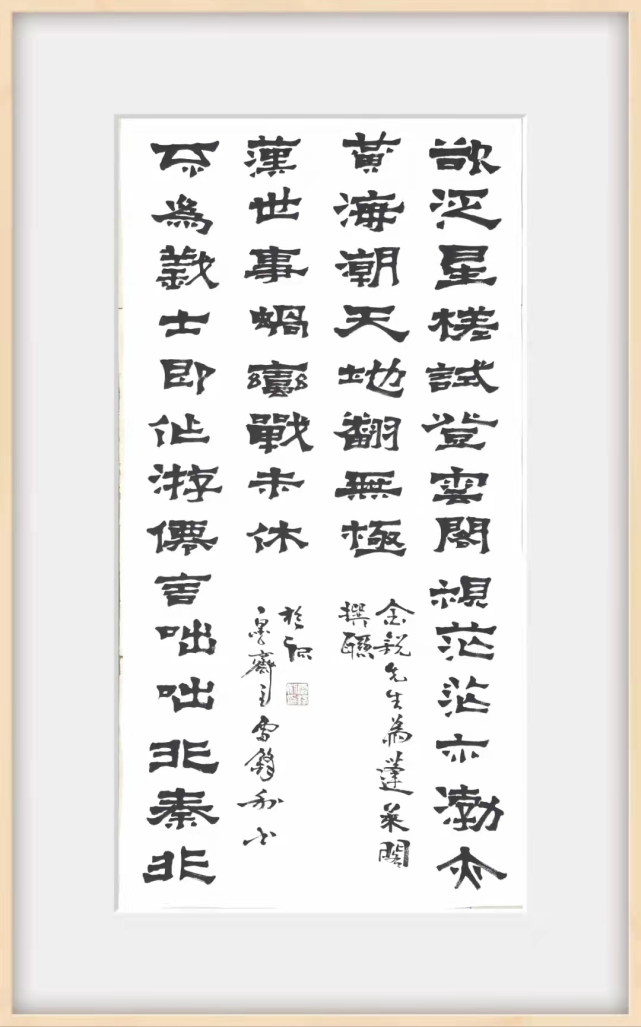 欲泛星槎試登雲閣視茫茫亦渤亦
黃海潮天地翻無極
金銳先生為蓬萊閣
撰聯
不為士即作游僊言咄咄非秦非
漢世事蝸戰未休
於
墨齋主